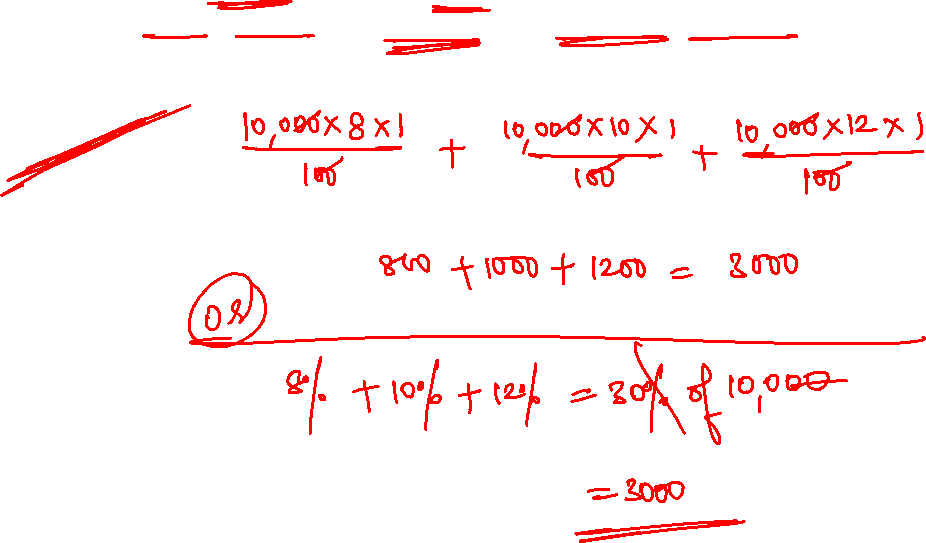 10,000×8×1/100 + 10,000×10×1/100 + 10,000×12×1/100
800 + 1000 + 1200 = 3000
OR
8% + 10% + 12% = 30% of 10,000
= 3000